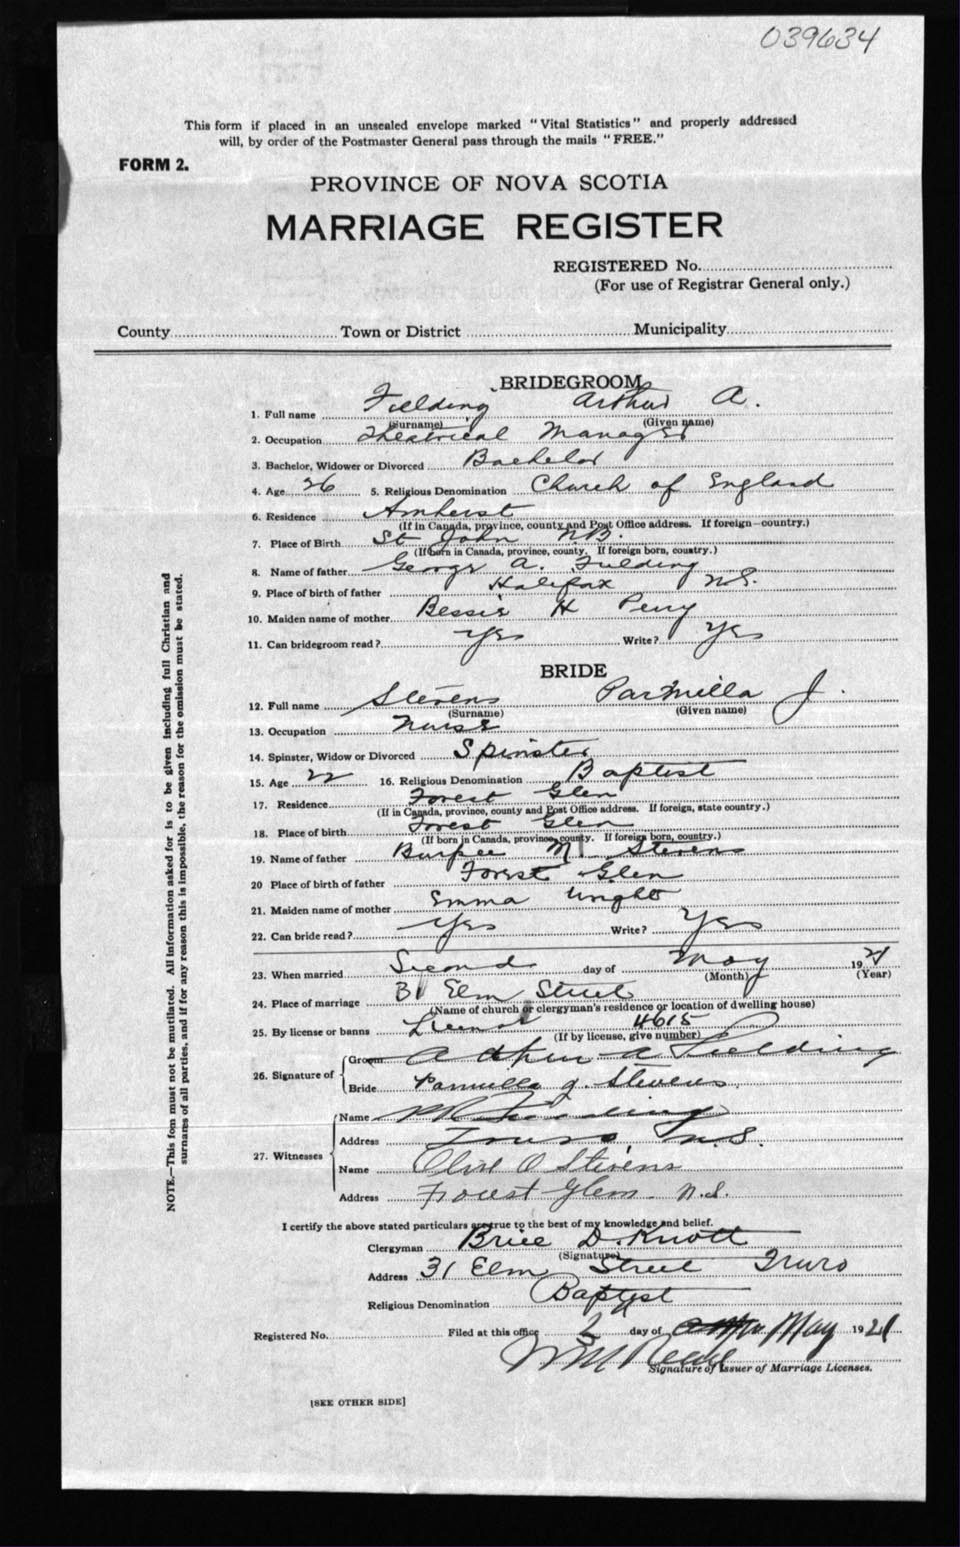 039634
This form if placed in an unsealed envelope marked "Vital Statistics" and properly addressed
will, by order of the Postmaster General pass through the mails "FREE."
FORM 2.
PROVINCE OF NOVA SCOTIA
MARRIAGE REGISTER
REGISTERED No.
(For use of Registrar General only.)
County Town or District Municipality
BRIDEGROOM
1. Full name Fielding Arthur A.
(Surname) (Given name)
2. Occupation Theatrical Manager
3. Bachelor, Widower or Divorced Bachelor
4. Age 26 5. Religious Denomination Church of England
6. Residence Amherst
(If in Canada, province, county and Post Office address. If foreign—country.)
7. Place of Birth St John N.B.
(If born in Canada, province, county. If foreign born, country.)
8. Name of father George A. Fielding
9. Place of birth of father Halifax N.S.
10. Maiden name of mother Bessie H Perry
11. Can bridegroom read? Yes Write? Yes
BRIDE
12. Full name Stevens Parmilla J.
(Surname) (Given name)
13. Occupation Nurse
14. Spinster, Widow or Divorced Spinster
15. Age 22 16. Religious Denomination Baptist
17. Residence Forest Glen
(If in Canada, province, county and Post Office address. If foreign, state country.)
18. Place of birth Forest Glen
(If born in Canada, province, county. If foreign born, country.)
19. Name of father Burpee M Stevens
20 Place of birth of father Forest Glen
21. Maiden name of mother Emma Wright
22. Can bride read? Yes Write? Yes
23. When married Second day of May 1921
(Month) (Year)
24. Place of marriage 31 Elm Street
(Name of church or clergyman's residence or location of dwelling house)
25. By license or banns License 4615
(If by license, give number)
26. Signature of Groom Arthur A Fielding
Bride Parmilla J. Stevens
27. Witnesses Name Fielding
Address Truro, N.S.
Name Olive O Stevens
Address Forest Glen N.S.
I certify the above stated particulars are true to the best of my knowledge and belief.
Clergyman Brice D. Knott
(Signature)
Address 31 Elm Street Truro
Religious Denomination Baptist
Registered No. Filed at this office 2 day of May 1921
Signature of Issuer of Marriage Licenses.
[SEE OTHER SIDE]
NOTE.—This fom must not be mutilated. All information asked for is to be given including full Christian and
surnames of all parties, and if for any reason this is impossible, the reason for the omission must be stated.